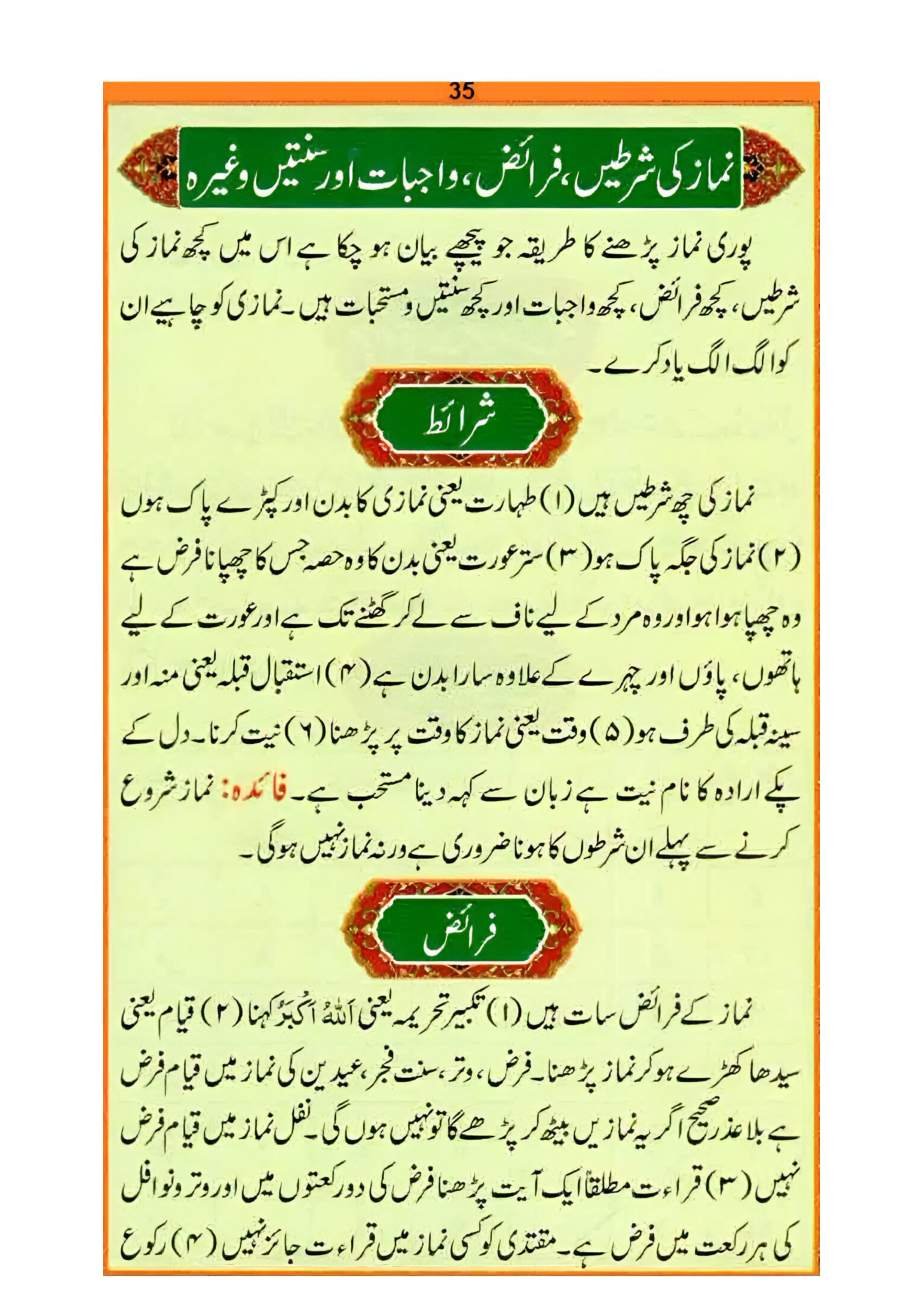 35
نماز کی شرطیں، فرائض، واجبات اور سنتیں وغیرہ
پوری نماز پڑھنے کا طریقہ جو پیچھے بیان ہو چکا ہے اس میں کچھ نماز کی
شرطیں، کچھ فرائض، کچھ واجبات اور کچھ سنتیں و مستحبات ہیں۔ نمازی کو چاہیے ان
کو الگ الگ یاد کرے۔
شرائط
نماز کی چھ شرطیں ہیں (۱) طہارت یعنی نمازی کا بدن اور کپڑے پاک ہوں
(۲) نماز کی جگہ پاک ہو (۳) ستر عورت یعنی بدن کا وہ حصہ جس کا چھپانا فرض ہے
وہ چھپا ہوا ہو اور وہ مرد کے لیے ناف سے لے کر گھٹنے تک ہے اور عورت کے لیے
ہاتھوں، پاؤں اور چہرے کے علاوہ سارا بدن ہے (۴) استقبال قبلہ یعنی منہ اور
سینہ قبلہ کی طرف ہو (۵) وقت یعنی نماز کا وقت پر پڑھنا (۶) نیت کرنا۔ دل کے
پکے ارادہ کا نام نیت ہے زبان سے کہہ دینا مستحب ہے۔ فائدہ: نماز شروع
کرنے سے پہلے ان شرطوں کا ہونا ضروری ہے ورنہ نماز نہیں ہوگی۔
فرائض
نماز کے فرائض سات ہیں (۱) تکبیر تحریمہ یعنی اَللّٰہُ اَکْبَرُ کہنا (۲) قیام یعنی
سیدھا کھڑے ہو کر نماز پڑھنا۔ فرض، وتر، سنت فجر، عیدین کی نماز میں قیام فرض
ہے بلا عذر صحیح اگر یہ نمازیں بیٹھ کر پڑھے گا تو نہیں ہوں گی۔ نفل نماز میں قیام فرض
نہیں (۳) قراءت مطلقاً ایک آیت پڑھنا فرض کی دو رکعتوں میں اور وتر و نوافل
کی ہر رکعت میں فرض ہے۔ مقتدی کو کسی نماز میں قراءت جائز نہیں (۴) رکوع